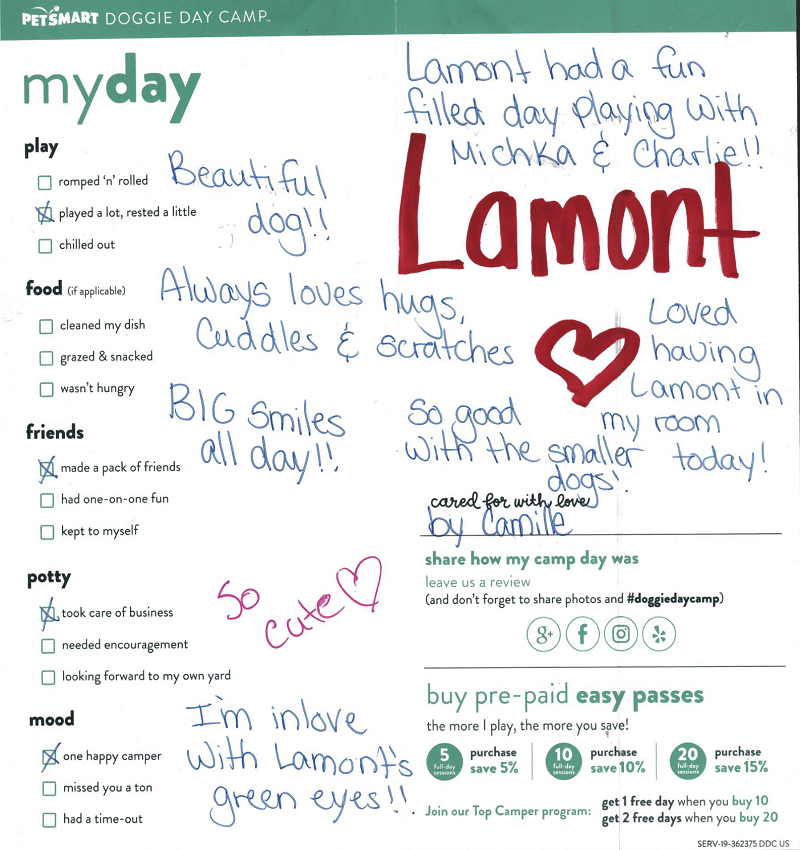 PETSMART DOGGIE DAY CAMP™
myday
play
romped 'n' rolled
played a lot, rested a little
chilled out
Beautiful
dog!!
food (if applicable)
cleaned my dish
grazed & snacked
wasn't hungry
Always loves hugs,
Cuddles & scratches
BIG smiles
all day!!
friends
made a pack of friends
had one-on-one fun
kept to myself
potty
took care of business
needed encouragement
looking forward to my own yard
So
cute
mood
one happy camper
missed you a ton
had a time-out
I'm inlove
with Lamont's
green eyes!!
Lamont had a fun
filled day playing with
Michka & Charlie!!
Lamont
Loved
having
Lamont in
my room
today!
So good
with the smaller
dogs!
cared for with love
by Camille
share how my camp day was
leave us a review
(and don't forget to share photos and #doggiedaycamp)
g+ f
buy pre-paid easy passes
the more I play, the more you save!
5 full-day sessions purchase save 5%
10 full-day sessions purchase save 10%
20 full-day sessions purchase save 15%
Join our Top Camper program: get 1 free day when you buy 10
get 2 free days when you buy 20
SERV-19-362375 DDC US